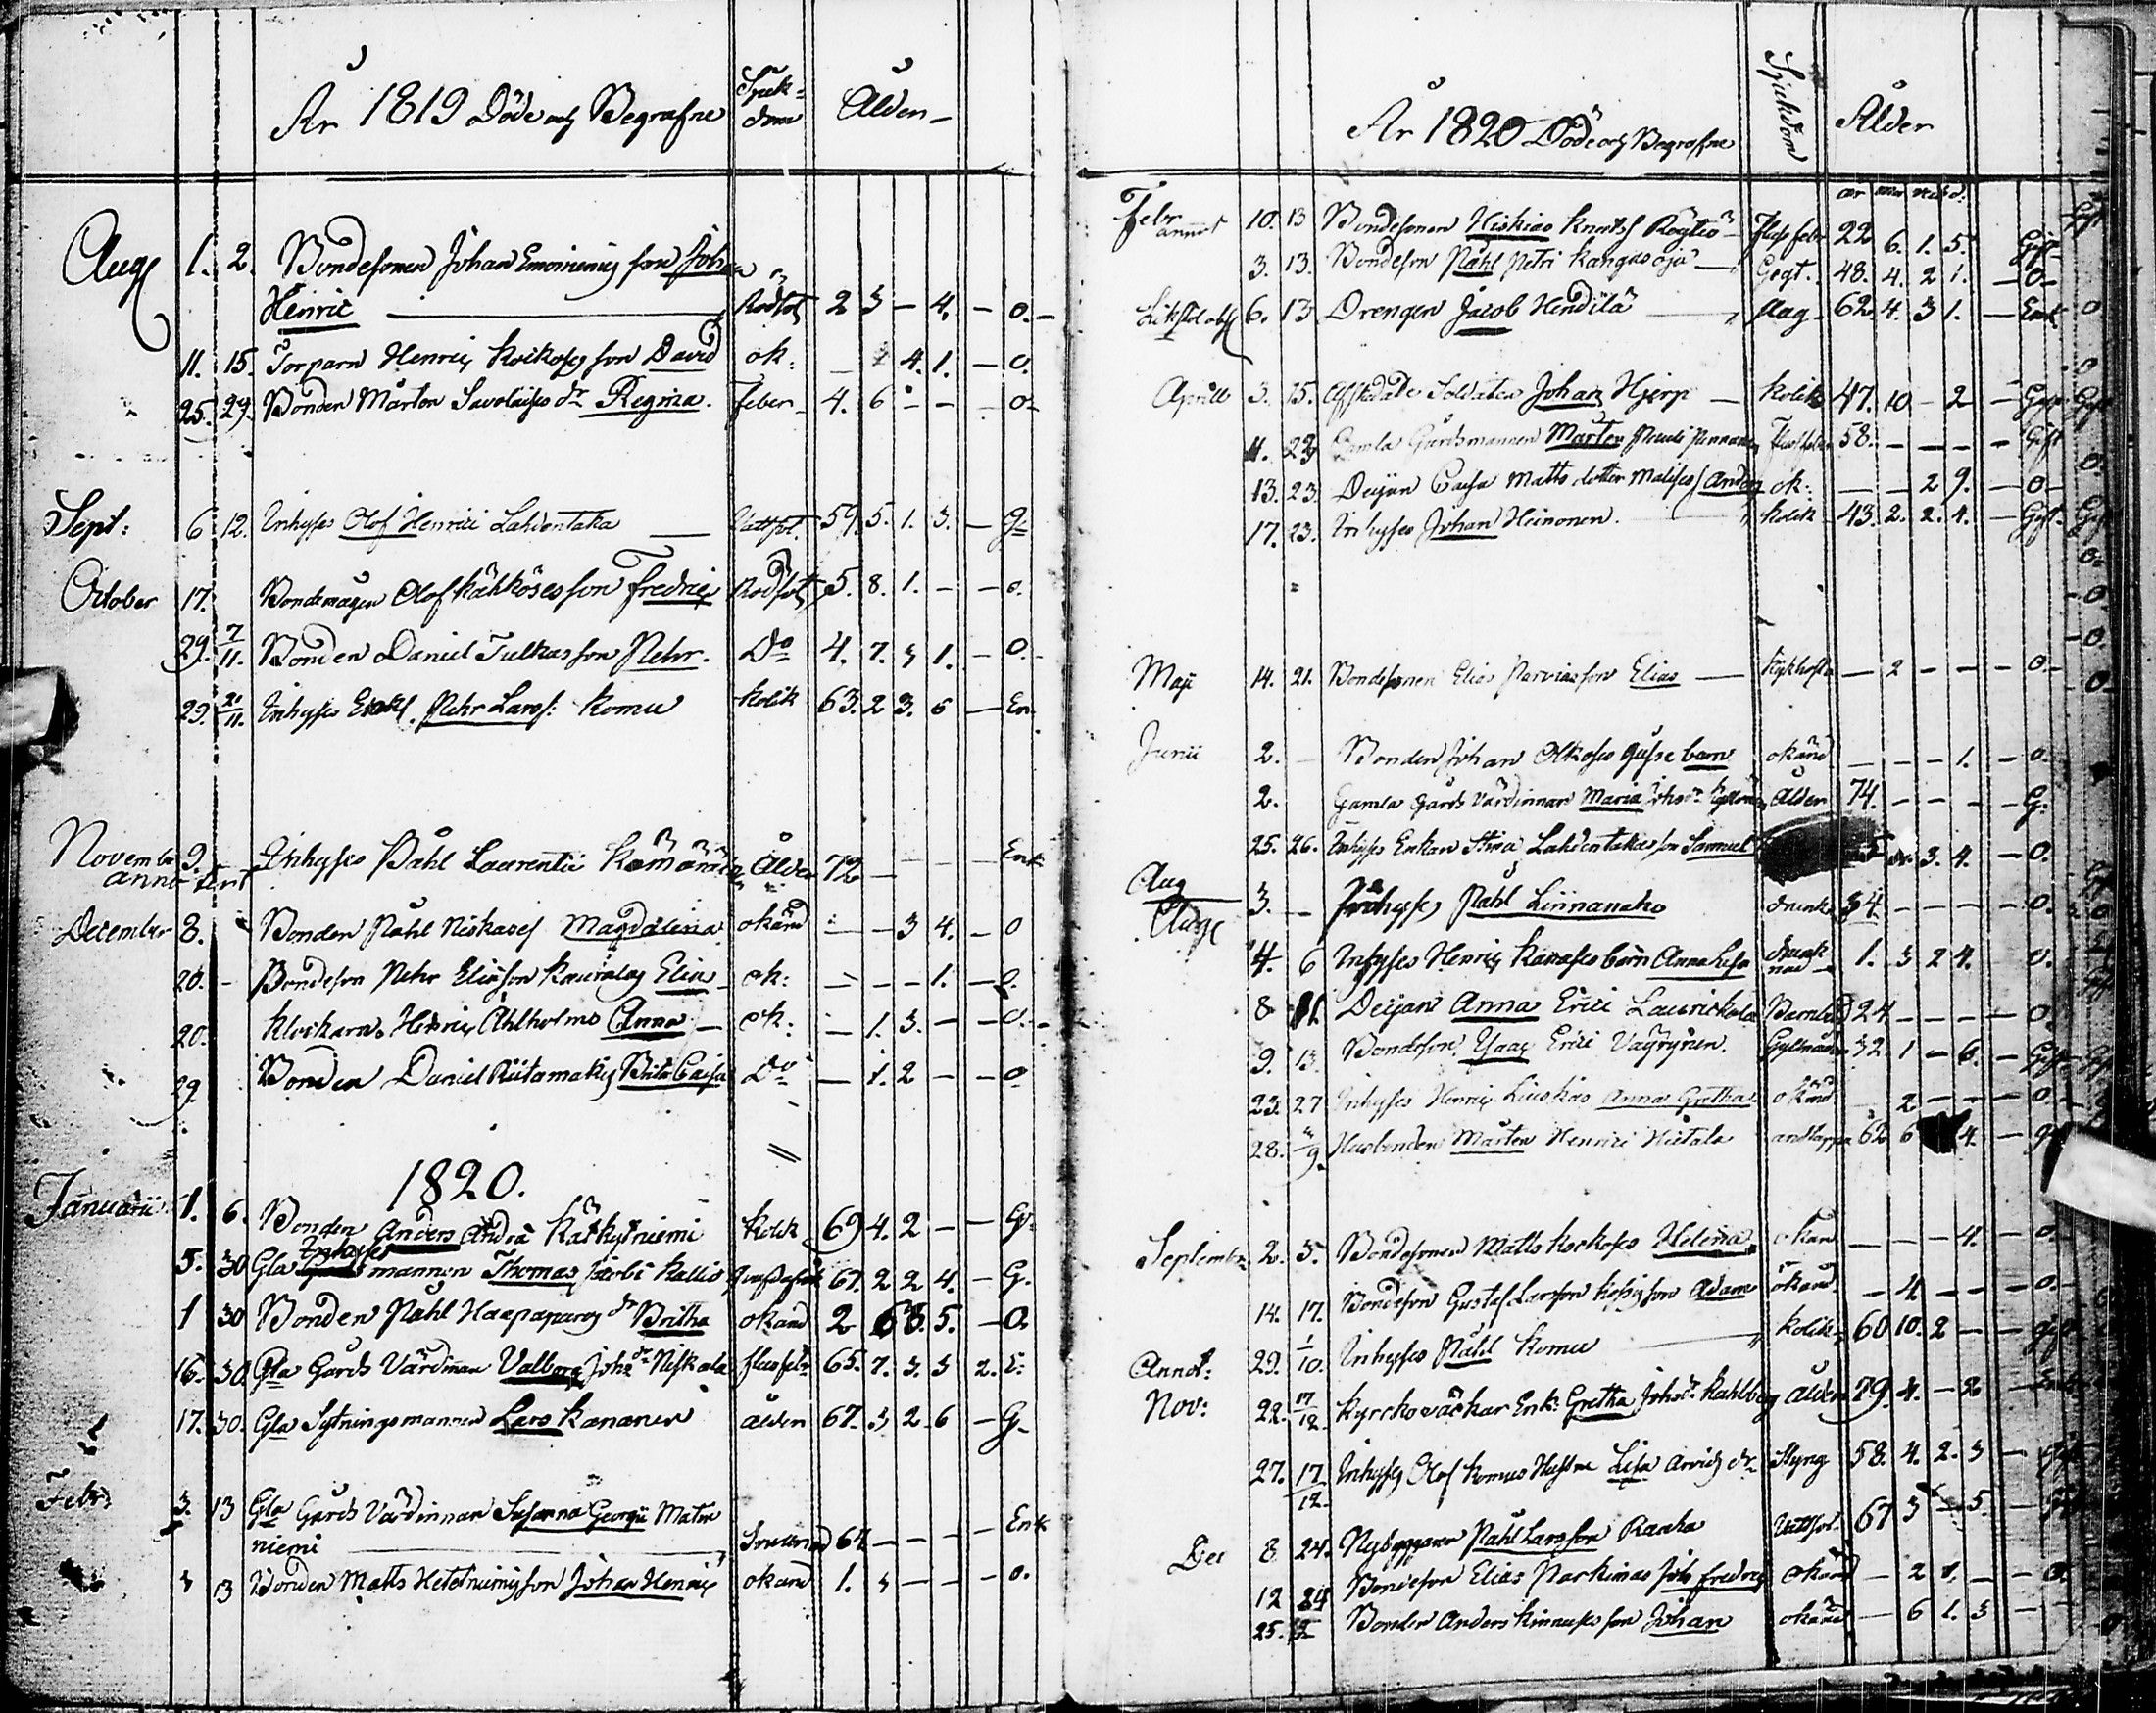 År 1819 Döde och Begrafne Sjuk- Ålder
dom
Aug 1. 2. Bondesonen Johan Emoiniemis son Joh
Henric Rödsot 2 3 - 4. - 0.
11. 15. Torparn Henric Koikoses son David ok: 4. 1. - 0.
25. 29. Bonden Mårten Savolaises dr Regina. Feber 4. 6 - - - 0
Sept: 6 12. Inhyses Olof Henrici Lahdentaka Vattsot. 59. 5. 1. 3. - G
October 17. Bondemågen Olof Kähköses son Fredric Rödsot 5. 8. 1. - - 0.
29. 7/11. Bonden Daniel Tulkas son Pehr. Do 4. 7. 3 1. - 0.
29. 21/11. Inhyses Enkl. Pehr Larss: Komu Kolik 63. 2 3. 6 - En
Novemb 9. Inhyses Påhl Laurentii Kämäräin Ålder 72 - - - - Enk
anno
December 8. Bonden Påhl Niskases Magdalena okänd - - 3 4. - 0
20. - Bondeson Pehr Eliasson Kauralas Elin ok: - - - 1. - 0.
20. Klockarn Henric Ahlholms Anna ok: - 1. 3. - - 0.
29 Bonden Daniel Riitamakis Brita Caisa Do - 1. 2 - - 0
1820.
Januarii 1. 6. Bonden Anders Andrä Kätkytniemi Kolik 69 4. 2 - - G
Inhyses
5. 30 Gla mannen Thomas Jacobi Kallio 67. 2 2 4. - G.
1 30 Bonden Påhl Haapaparos dr Britha okänd 2 6 8. 5. - 0.
16. 30. Gla Gårds Värdinnan Valborg Johsdr Niskala flussfebr 65. 7. 3. 3 2. E:
17. 30. Gla Sytningsmannen Lars Kananen ålder 67. 3 2 6 - G
Febr: 3. 13 Gla Gårds Värdinnan Susanna Georgii Maten
niemi 64 - - - - Enk
3 13 Bonden Matts Heteniemis son Johan Henric okänd 1. 3 - - - 0.
År 1820 Döde och Begrafne Sjukdom Ålder
år mån veck d:
Febr 10. 13 Bondesonen Hiskias Knutss Rögtiö Flussfebr 22 6. 1. 5. Gift
annot 3. 13. Bondeson Påhl Petri Kangasoja Gigt. 48. 4. 2 1. - 0
6. 13 Drengen Jacob Hendilä Mag 62. 4. 3 1. - Enk
Aprill 3. 15. Afskedade Soldaten Johan Hjerp Kolik 47. 10 - 2 - Gift
11. 23 Gamla Gårdsmannen Mårten Pennanen Flussfeber 58. - - - - Gift
13. 23. Deijan Caisa Matts dotter Malises Anders ok: - - 2 9. - 0
17. 23. Inhyses Johan Heinonen. Kolik 43. 2. 2. 4. - Gift.
Maji 14. 21. Bondesonen Elias Parviais son Elias Kikhosta - 2 - - - 0
Junii 2. - Bonden Johan Olkoses gosse barn okänd - - - 1. - 0.
2. Gamla gårds värdinnan Maria Johsdr Ålder 74. - - - - G:
25. 26. Inhyses Enkan Stina Lahdentakas son Samuel 3. 4. - 0.
Aug
Aug 3. - Inhyses Påhl Liinanako drunk 34 - - - - 0.
4. 6 Inhyses Henric Kanases barn Anna Lisa drunk 1. 3 2 4. 0.
nad
8 11. Deijan Anna Erici Laurickala Barnbörd 24 - - - - 0.
9. 13. Bondeson Isaac Erici Väyrynen. 32. 1 - 6. - Gift
23. 27 Inhyses Henric Liuskas Anna Gretha okänd 2 - - - 0
28. 3/9. Husbonden Mårten Henrici Hietala andtäppa 62 6 4. - gift
Septembr 2. 3. Bondesonen Matts Koskoses Helena okänd - - - 4. - 0
14. 17. Bondeson Gustaf Larsson Kossis son Adam okänd - 4 - - - 0
Annot: 29. 1/10. Inhyses Påhl Komu Kolik 60 10. 2 - - gift
Nov: 22. 17/12 Kyrckovächtar Enk: Gretha Johsdr Kahlberg ålder 79. 4. - 2 - Enk
27. 17/12. Inhyses Olof Komus Hustru Lisa Arvids dr Styng 58. 4. 2. 3 - gift
Dec 8 24. Nybyggaren Påhl Larsson Ranha Vattsot. 67 3 - 5. -
12 24 Bondeson Elias Parkinas Joh fredric okänd - 2 1. - - 0.
25. Bonden Anders Kinnuses son Johan okänd - 6 1. 3 -